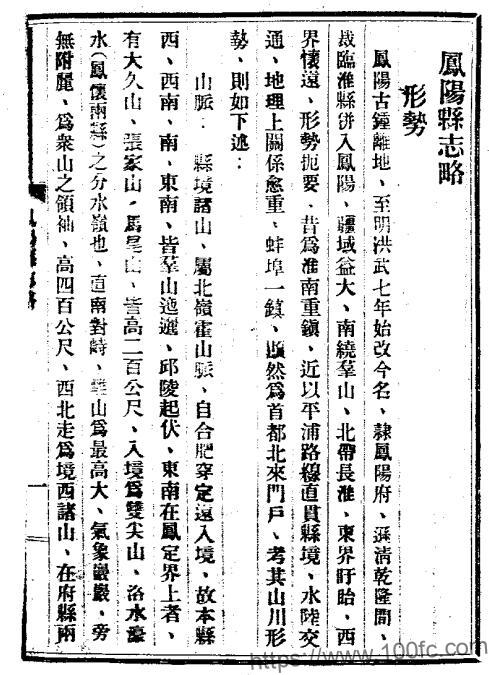 鳳陽縣志略
形勢
鳳陽古鐘離地、至明洪武七年始改今名、隸鳳陽府、淸乾隆間、
裁臨淮縣併入鳳陽、疆域益大、南繞羣山、北帶長淮、東界盱眙、西
界懷遠、形勢扼要、昔爲淮南重鎭、近以平浦路線直貫縣境、水陸交
通、地理上關係愈重、蚌埠一鎭、顯然爲首都北來門戶、考其山川形
勢、則如下述：
山脈：縣境諸山、屬北嶺霍山脈、自合肥穿定遠入境、故本縣
西、西南、南、東南、皆羣山迤邐、邱陵起伏、東南在鳳定界上者、
有大久山、張家山、馬尾山、皆高二百公尺、入境爲雙尖山、洛水濠
水（鳳懷兩縣）之分水嶺也、直南對峙、山爲最高大、氣象巖巖、旁
無附麗、爲衆山之領袖、高四百公尺、西北走爲境西諸山、在府縣兩
一
https://www.100fc.com